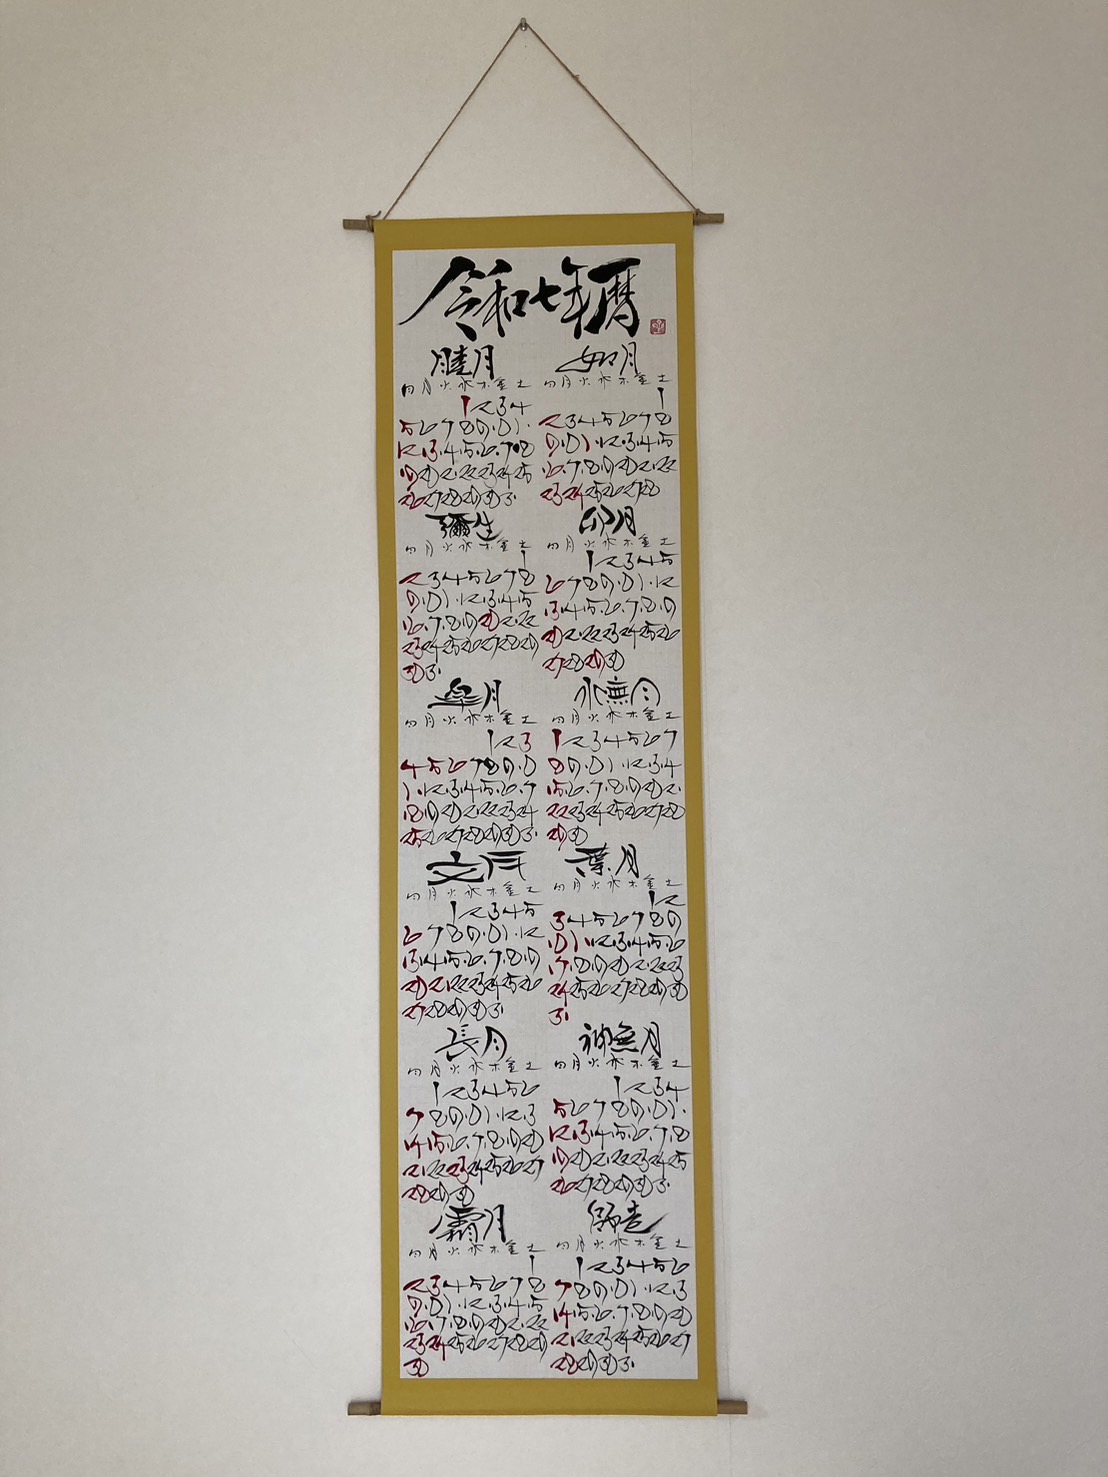 令和七年暦
睦月
日 月 火 水 木 金 土
1 2 3 4
5 6 7 8 9 10 11
12 13 14 15 16 17 18
19 20 21 22 23 24 25
26 27 28 29 30 31
如月
日 月 火 水 木 金 土
1
2 3 4 5 6 7 8
9 10 11 12 13 14 15
16 17 18 19 20 21 22
23 24 25 26 27 28
彌生
日 月 火 水 木 金 土
1
2 3 4 5 6 7 8
9 10 11 12 13 14 15
16 17 18 19 20 21 22
23 24 25 26 27 28 29
30 31
卯月
日 月 火 水 木 金 土
1 2 3 4 5
6 7 8 9 10 11 12
13 14 15 16 17 18 19
20 21 22 23 24 25 26
27 28 29 30
皐月
日 月 火 水 木 金 土
1 2 3
4 5 6 7 8 9 10
11 12 13 14 15 16 17
18 19 20 21 22 23 24
25 26 27 28 29 30 31
水無月
日 月 火 水 木 金 土
1 2 3 4 5 6 7
8 9 10 11 12 13 14
15 16 17 18 19 20 21
22 23 24 25 26 27 28
29 30
文月
日 月 火 水 木 金 土
1 2 3 4 5
6 7 8 9 10 11 12
13 14 15 16 17 18 19
20 21 22 23 24 25 26
27 28 29 30 31
葉月
日 月 火 水 木 金 土
1 2
3 4 5 6 7 8 9
10 11 12 13 14 15 16
17 18 19 20 21 22 23
24 25 26 27 28 29 30
31
長月
日 月 火 水 木 金 土
1 2 3 4 5 6
7 8 9 10 11 12 13
14 15 16 17 18 19 20
21 22 23 24 25 26 27
28 29 30
神無月
日 月 火 水 木 金 土
1 2 3 4
5 6 7 8 9 10 11
12 13 14 15 16 17 18
19 20 21 22 23 24 25
26 27 28 29 30 31
霜月
日 月 火 水 木 金 土
1
2 3 4 5 6 7 8
9 10 11 12 13 14 15
16 17 18 19 20 21 22
23 24 25 26 27 28 29
30
師走
日 月 火 水 木 金 土
1 2 3 4 5 6
7 8 9 10 11 12 13
14 15 16 17 18 19 20
21 22 23 24 25 26 27
28 29 30 31